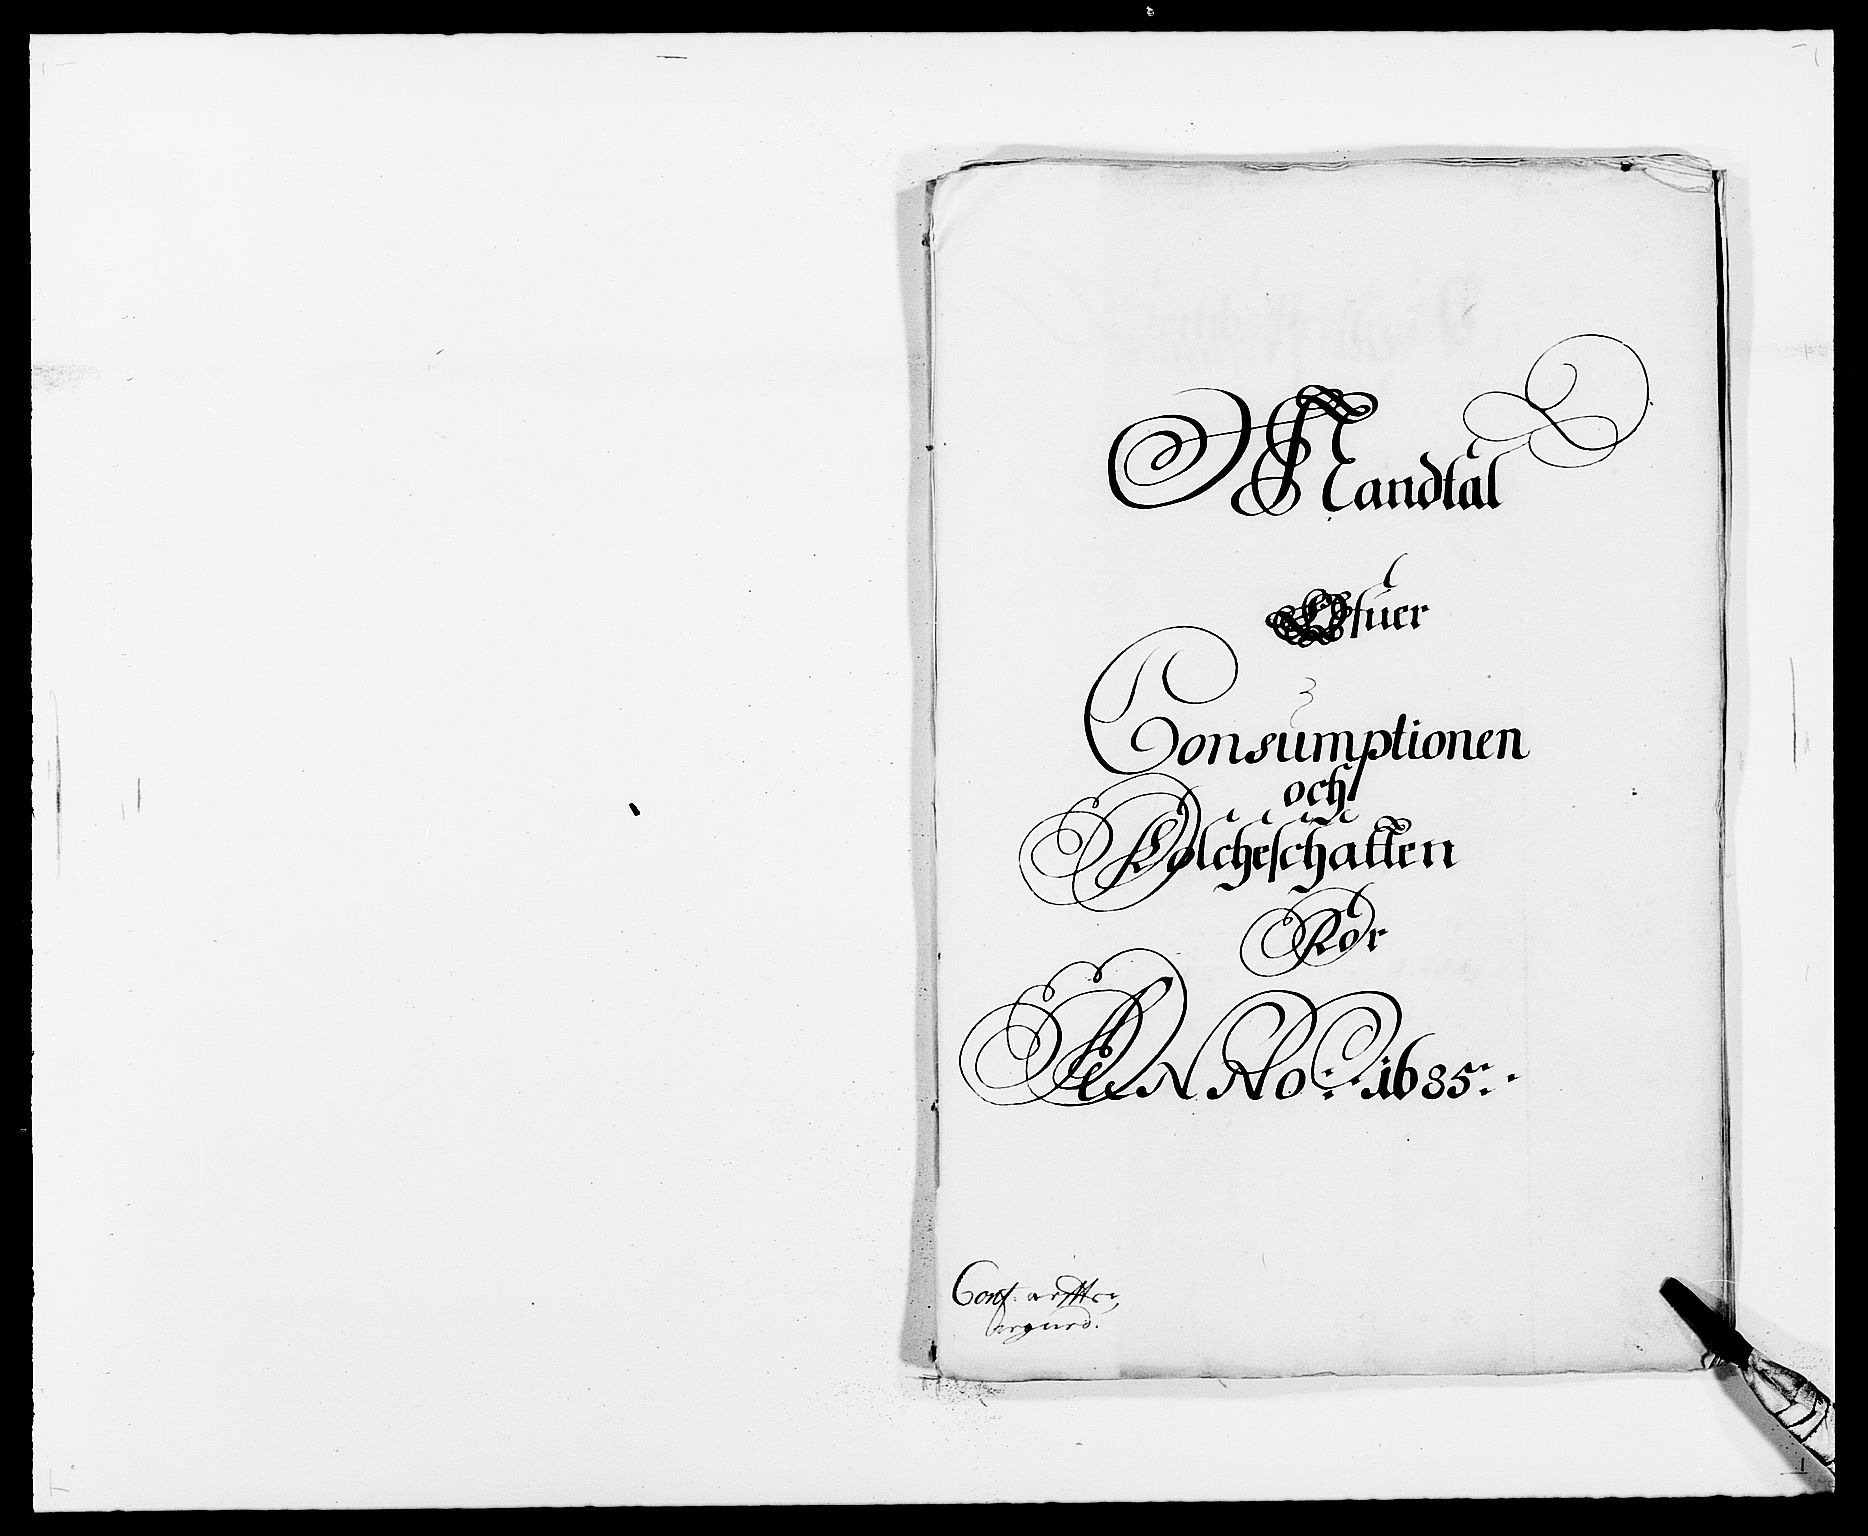 Mandtal
Öfuer
Consumptionen
och
Folcheschatten
För
ANNo: 1685:
1